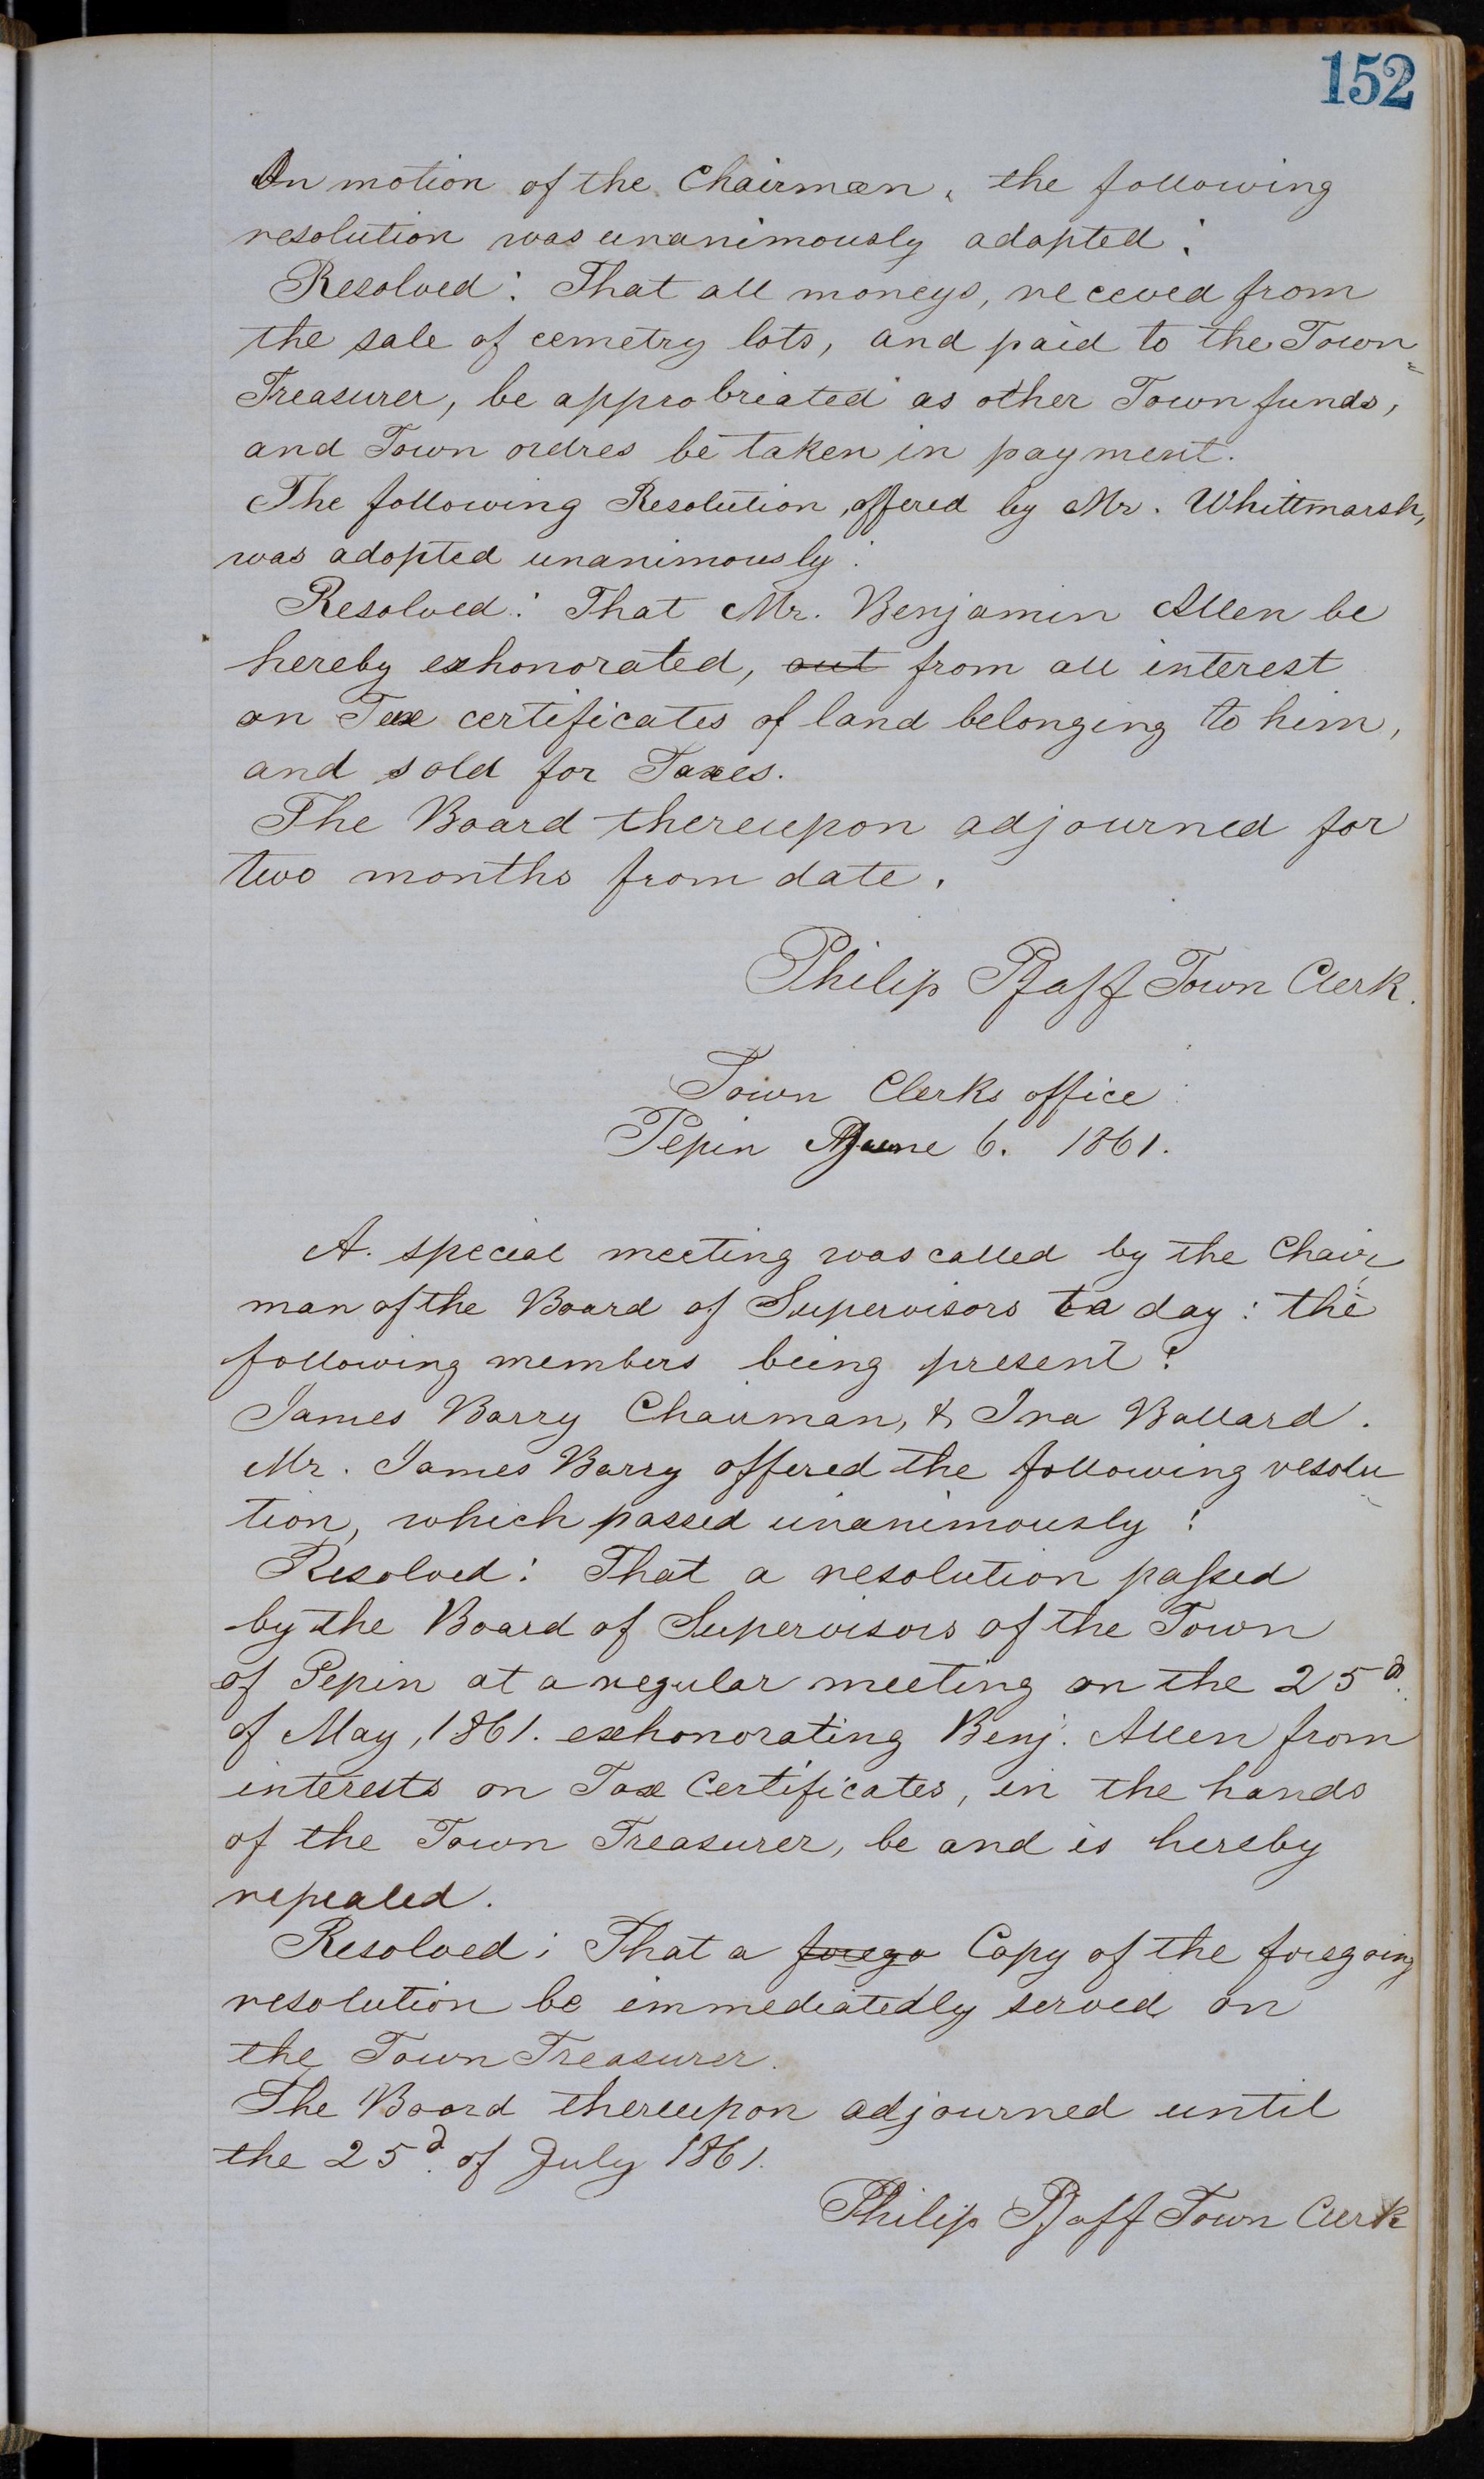 152
On motion of the Chairman, the following
resolution was unanimously adopted:
Resolved: That all moneys, receved from
the sale of cemetry lots, and paid to the Town=
Treasurer, be approbriated as other Town funds,
and Town ordres be taken in payment.
The following Resolution, offered by Mr. Whittmarsh,
was adopted unanimously:
Resolved: That Mr. Benjamin Allen be
hereby exhonorated, out from all interest
on Tax certificates of land belonging to him,
and sold for Taxes.
The Board thereupon adjourned for
two months from date.
Philip Pfaff Town Clerk.
Town Clerks office
Pepin June 6. 1861.
A. special meeting was called by the Chair
man of the Board of Supervisors to day: the
following members being present:
James Barry Chairman, & Ira Ballard.
Mr. James Barry offered the following resolu
tion, which passed unanimously:
Resolved: That a resolution passed
by the Board of Supervisors of the Town
of Pepin at a regular meeting on the 25d.
of May, 1861. exhonorating Benj. Allen from
interests on Tax Certificates, in the hands
of the Town Treasurer, be and is hereby
repealed.
Resolved: That a forego Copy of the foregoing
resolution be immediatedly served on
the Town Treasurer.
The Board thereupon adjourned until
the 25d. of July 1861.
Philip Pfaff Town Clerk